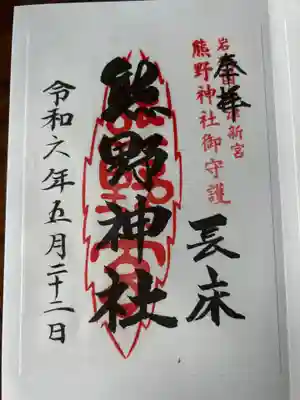 奉拝
岩 新宮
熊野神社御守護
長床
熊野神社
令和六年五月二十二日